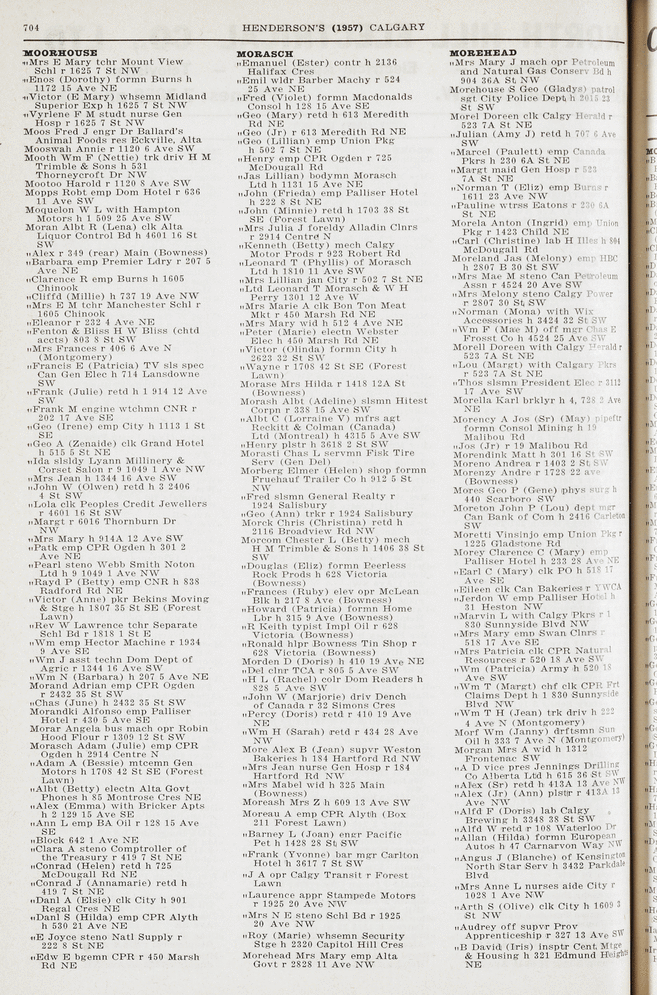 704
HENDERSON'S (1957) CALGARY
MOORHOUSE
„Mrs E Mary tchr Mount View
Schl r 1625 7 St NW
„Enos (Dorothy) formn Burns h
1172 15 Ave NE
„Victor (E Mary) whsemn Midland
Superior Exp h 1625 7 St NW
„Vyrlene F M studt nurse Gen
Hosp r 1625 7 St NW
Moos Fred J engr Dr Ballard's
Animal Foods res Eckville, Alta
Mooswah Annie r 1120 6 Ave SW
Mooth Wm F (Nettie) trk driv H M
Trimble & Sons h 531
Thorneycroft Dr NW
Mootoo Harold r 1120 8 Ave SW
Mopps Robt emp Dom Hotel r 636
11 Ave SW
Moquelon W L with Hampton
Motors h 1 509 25 Ave SW
Moran Albt R (Lena) clk Alta
Liquor Control Bd h 4601 16 St
SW
„Alex r 349 (rear) Main (Bowness)
„Barbara emp Premier Ldry r 207 5
Ave NE
„Clarence R emp Burns h 1605
Chinook
„Cliffd (Millie) h 737 19 Ave NW
„Mrs E M tchr Manchester Schl r
1605 Chinook
„Eleanor r 232 4 Ave NE
„Fenton & Bliss H W Bliss (chtd
accts) 803 8 St SW
„Mrs Frances r 406 6 Ave N
(Montgomery)
„Francis E (Patricia) TV sls spec
Can Gen Elec h 714 Lansdowne
SW
„Frank (Julie) retd h 1 914 12 Ave
SW
„Frank M engine wtchmn CNR r
202 17 Ave SE
„Geo (Irene) emp City h 1113 1 St
SE
„Geo A (Zenaide) clk Grand Hotel
h 515 5 St NE
„Ida slsldy Lyann Millinery &
Corset Salon r 9 1049 1 Ave NW
„Mrs Jean h 1344 16 Ave SW
„John W (Olwen) retd h 3 2406
4 St SW
„Lola clk Peoples Credit Jewellers
r 4601 16 St SW
„Margt r 6016 Thornburn Dr
NW
„Mrs Mary h 914A 12 Ave SW
„Patk emp CPR Ogden h 301 2
Ave NE
„Pearl steno Webb Smith Noton
Ltd h 9 1049 1 Ave NW
„Rayd P (Betty) emp CNR h 838
Radford Rd NE
„Victor (Anne) pkr Bekins Moving
& Stge h 1807 35 St SE (Forest
Lawn)
„Rev W Lawrence tchr Separate
Schl Bd r 1818 1 St E
„Wm emp Hector Machine r 1934
9 Ave SE
„Wm J asst techn Dom Dept of
Agric r 1344 16 Ave SW
„Wm N (Barbara) h 207 5 Ave NE
Morand Adrian emp CPR Ogden
r 2432 35 St SW
„Chas (June) h 2432 35 St SW
Morandki Alfonso emp Palliser
Hotel r 430 5 Ave SE
Morar Angela bus mach opr Robin
Hood Flour r 1309 12 St SW
Morasch Adam (Julie) emp CPR
Ogden h 2914 Centre N
„Adam A (Bessie) mtcemn Gen
Motors h 1708 42 St SE (Forest
Lawn)
„Albt (Betty) electn Alta Govt
Phones h 85 Montrose Cres NE
„Alex (Emma) with Bricker Apts
h 2 129 15 Ave SE
„Ann L emp BA Oil r 128 15 Ave
SE
„Block 642 1 Ave NE
„Clara A steno Comptroller of
the Treasury r 419 7 St NE
„Conrad (Helen) retd h 725
McDougall Rd NE
„Conrad J (Annamarie) retd h
419 7 St NE
„Danl A (Elsie) clk City h 901
Regal Cres NE
„Danl S (Hilda) emp CPR Alyth
h 530 21 Ave NE
„E Joyce steno Natl Supply r
222 8 St NE
„Edw E bgemn CPR r 450 Marsh
Rd NE
MORASCH
„Emanuel (Ester) contr h 2136
Halifax Cres
„Emil wldr Barber Machy r 524
25 Ave NE
„Fred (Violet) formn Macdonalds
Consol h 128 15 Ave SE
„Geo (Mary) retd h 613 Meredith
Rd NE
„Geo (Jr) r 613 Meredith Rd NE
„Geo (Lillian) emp Union Pkg
h 502 7 St NE
„Henry emp CPR Ogden r 725
McDougall Rd
„Jas (Lillian) bodymn Morasch
Ltd h 1131 15 Ave NE
„John (Frieda) emp Palliser Hotel
h 222 8 St NE
„John (Minnie) retd h 1703 38 St
SE (Forest Lawn)
„Mrs Julia J foreldy Alladin Clnrs
r 2914 Centre N
„Kenneth (Betty) mech Calgy
Motor Prods r 923 Robert Rd
„Leonard T (Phyllis) of Morasch
Ltd h 1810 11 Ave SW
„Mrs Lillian jan City r 502 7 St NE
„Ltd Leonard T Morasch & W H
Perry 1301 12 Ave W
„Mrs Marie A clk Bon Ton Meat
Mkt r 450 Marsh Rd NE
„Mrs Mary wid h 512 4 Ave NE
„Peter (Marie) electn Webster
Elec h 450 Marsh Rd NE
„Victor (Olinda) formn City h
2623 32 St SW
„Wayne r 1708 42 St SE (Forest
Lawn)
Morase Mrs Hilda r 1418 12A St
(Bowness)
Morash Albt (Adeline) slsmn Hitest
Corpn r 338 15 Ave SW
„Albt C (Lorraine V) mfrs agt
Reckitt & Colman (Canada)
Ltd (Montreal) h 4315 5 Ave SW
„Henry plstr h 3618 2 St SW
Morasti Chas L servmn Fisk Tire
Serv (Gen Del)
Morberg Elmer (Helen) shop formn
Fruehauf Trailer Co h 912 5 St
NW
„Fred slsmn General Realty r
1924 Salisbury
„Geo (Ann) trkr r 1924 Salisbury
Morck Chris (Christina) retd h
2116 Broadview Rd NW
Morcom Chester L (Betty) mech
H M Trimble & Sons h 1406 38 St
SW
„Douglas (Eliz) formn Peerless
Rock Prods h 628 Victoria
(Bowness)
„Frances (Ruby) elev opr McLean
Blk h 217 8 Ave (Bowness)
„Howard (Patricia) formn Home
Lbr h 315 9 Ave (Bowness)
„R Keith typist Impl Oil r 628
Victoria (Bowness)
„Ronald hlpr Bowness Tin Shop r
628 Victoria (Bowness)
Morden D (Doris) h 410 19 Ave NE
„Del clnr TCA r 805 5 Ave SW
„H L (Rachel) colr Dom Readers h
828 5 Ave SW
„John W (Marjorie) driv Dench
of Canada r 32 Simons Cres
„Percy (Doris) retd r 410 19 Ave
NE
„Wm H (Sarah) retd r 434 28 Ave
NW
More Alex B (Jean) supvr Weston
Bakeries h 184 Hartford Rd NW
„Mrs Jean nurse Gen Hosp r 184
Hartford Rd NW
„Mrs Mabel wid h 325 Main
(Bowness)
Moreash Mrs Z h 609 13 Ave SW
Moreau A emp CPR Alyth (Box
211 Forest Lawn)
„Barney L (Joan) engr Pacific
Pet h 1428 28 St SW
„Frank (Yvonne) bar mgr Carlton
Hotel h 3617 7 St SW
„J A opr Calgy Transit r Forest
Lawn
„Laurence appr Stampede Motors
r 1925 20 Ave NW
„Mrs N E steno Schl Bd r 1925
20 Ave NW
„Roy (Marie) whsemn Security
Stge h 2320 Capitol Hill Cres
Morehead Mrs Mary emp Alta
Govt r 2828 11 Ave NW
MOREHEAD
„Mrs Mary J mach opr Petroleum
and Natural Gas Conserv Bd h
904 36A St NW
Morehouse S Geo (Gladys) patrol
sgt City Police Dept h 2015 23
St SW
Morel Doreen clk Calgy Herald r
523 7A St NE
„Julian (Amy J) retd h 707 6 Ave
SW
„Marcel (Paulett) emp Canada
Pkrs h 230 6A St NE
„Margt maid Gen Hosp r 523
7A St NE
„Norman T (Eliz) emp Burns r
1611 23 Ave NW
„Pauline wtrss Eatons r 230 6A
St NE
Morela Anton (Ingrid) emp Union
Pkg r 1423 Child NE
„Carl (Christine) lab H Illes h 804
McDougall Rd
Moreland Jas (Melony) emp HBC
h 2807 B 30 St SW
„Mrs Mae steno Can Petroleum
Assn r 4524 20 Ave SW
„Mrs Melony steno Calgy Power
r 2807 30 St SW
„Norman (Mona) with Wix
Accessories h 3424 32 St SW
„Wm F (Mae M) off mgr Chas E
Frosst Co h 4524 25 Ave SW
Morell Doreen with Calgy Herald r
523 7A St NE
„Lou (Margt) with Calgary Pkrs
r 523 7A St NE
„Thos slsmn President Elec r 3112
17 Ave SW
Morella Karl brklyr h 4, 728 2 Ave
NE
Morency A Jos (Sr) (May) pipeftr
formn Consol Mining h 19
Malibou Rd
„Jos (Jr) r 19 Malibou Rd
Morendink Matt h 301 16 St SW
Moreno Andrea r 1403 2 St SW
Morenzy Andre r 1728 22 ave
(Bowness)
Mores Geo P (Gene) phys surg h
440 Scarboro SW
Moreton John P (Lou) dept mgr
Can Bank of Com h 2416 Carleton
SW
Moretti Vinsinjo emp Union Pkg r
1225 Gladstone Rd
Morey Clarence C (Mary) emp
Palliser Hotel h 233 28 Ave NE
„Earl C (Mary) clk PO h 518 17
Ave SE
„Eileen clk Can Bakeries r YWCA
„Jerdon W emp Palliser Hotel h
31 Heston NW
„Marvin L with Calgy Pkrs r 1
830 Sunnyside Blvd NW
„Mrs Mary emp Swan Clnrs r
518 17 Ave SE
„Mrs Patricia clk CPR Natural
Resources r 520 18 Ave SW
„Wm (Patricia) Army h 520 18
Ave SW
„Wm T (Margt) chf clk CPR Frt
Claims Dept h 1 830 Sunnyside
Blvd NW
„Wm T H (Jean) trk driv h 222
4 Ave N (Montgomery)
Morf Wm (Janny) drftsmn Sun
Oil h 333 7 Ave N (Montgomery)
Morgan Mrs A wid h 1312
Frontenac SW
„A D vice pres Jennings Drilling
Co Alberta Ltd h 615 36 St SW
„Alex (Sr) retd h 413A 13 Ave NW
„Alex (Jr) (Ann) plstr r 413A 13
Ave NW
„Alfd F (Doris) lab Calgy
Brewing h 3348 38 St SW
„Alfd W retd r 108 Waterloo Dr
„Allan (Hilda) formn European
Autos h 47 Carnarvon Way NW
„Angus J (Blanche) of Kensington
North Star Serv h 3432 Parkdale
Blvd
„Mrs Anne L nurses aide City r
1028 1 Ave NW
„Arth S (Olive) clk City h 1609 3
St NW
„Audrey off supvr Prov
Apprenticeship r 327 13 Ave SW
„B David (Iris) insptr Cent Mtge
& Housing h 321 Edmund Heights
NE